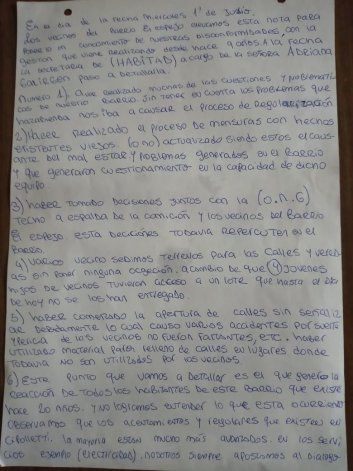 En el dia de la fecha miercoles 1° de Junio.
Los vecinos del Barrio El espejo elevamos esta nota para
poner en conocimiento de nuestras disconformidades, con la
gestion que viene realizando desde hace 9 años. A la fecha
la secretaria de (HABITAD) a cargo de la señora ADRIANA
paso a detallarla.
Numero 1). Aver realizado muchas de las cuestiones y problemati
cas de nuestro Barrio. sin tener en cuenta los problemas que
nos iba a causar el proceso de Regolarizazión
2) Haber Realizado el proceso de mensuras con hechos
existentes viejos. (o no) actualizado siendo estos el caus-
ante del mal estar y problemas generados en el Barrio
y que generaron cuestionamiento en la capacidad de dicho
equipo.
3) haber tomado decisiones juntos con la (O.N.G)
Techo a espalda de la comición y los vecinos del Barrio
El espejo esta deciciónes todavia repercuten en el
Barrio.
4) varios vecino sedimos terrenos para las calles y vered-
as sin poner ninguna a cambio de que (4) jovenes
hijos de vecinos tuvieron acceso a un lote que hasta el dia
de hoy no se los han entregado.
5) haber comenzado la apertura de calles sin señaliz
ar debidamente lo cual causo varios accidentes por suerte
de los vecinos no fueron fastantes, etc. haber
utilizado material para relleno de calles en lugares donde
todavia no son utilizados por los vecinos.
6) Este punto que vamos a detallar es el que genero la
reacción de todos los habitantes de este barrio que existe
hace 20 años. y no logramos entender lo que esta ocurriendo
observamos que los acentamientos y regulares que existen en
Cipolletti. la mayoria estan mucho más avanzados en los servi
cios ejemplo (electricidad). nosotros siempre apostamos al dialogo